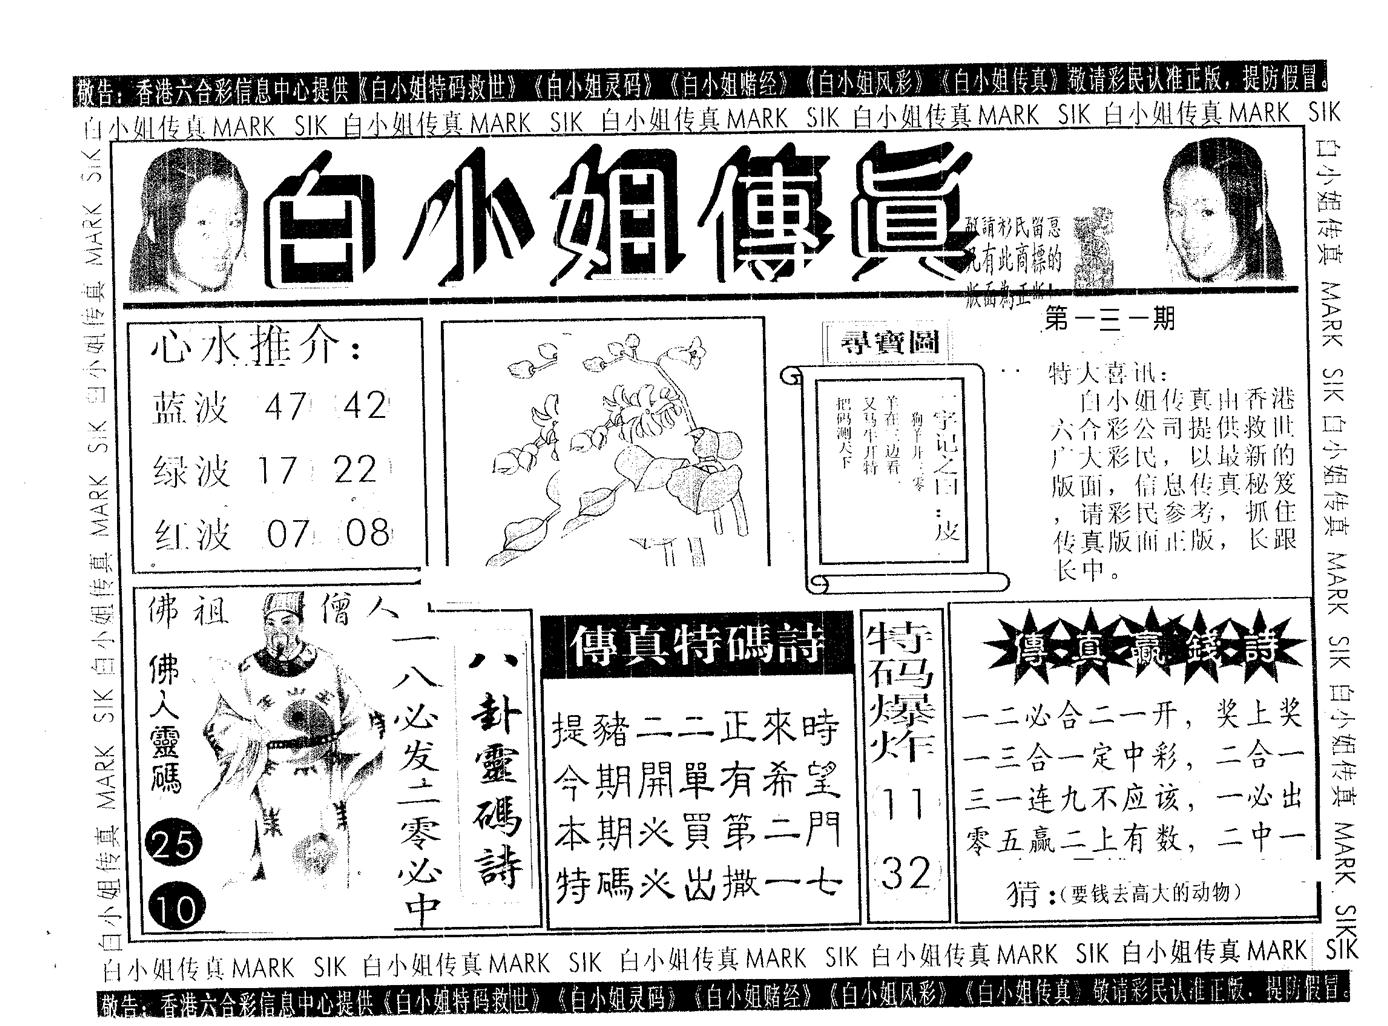 敬告：香港六合彩信息中心提供《白小姐特码救世》《白小姐灵码》《白小姐赌经》《白小姐风彩》《白小姐传真》敬请彩民认准正版，提防假冒。
白小姐传真MARK SIK 白小姐传真MARK SIK 白小姐传真MARK SIK 白小姐传真MARK SIK 白小姐传真MARK SIK
白小姐傳眞
敬請彩民留意
凡有此商標的
版面為正版
第一三一期
心水推介：
蓝波 47 42
绿波 17 22
红波 07 08
尋寶圖
一字记之曰：皮
狗羊开三零
羊在三边看
又马牛开特
把码测天下
特大喜讯：
白小姐传真由香港
六合彩公司提供救世
广大彩民，以最新的
版面，信息传真秘笈
，请彩民参考，抓住
传真版面正版，长跟
长中。
佛祖 僧人
佛人靈碼
25
10
一八必发二零必中
八卦靈碼詩
傳真特碼詩
提豬二二正來時
今期開單有希望
本期必買第二門
特碼必出撒一七
特码爆炸
11
32
傳真贏錢詩
一二必合二一开，奖上奖
一三合一定中彩，二合一
三一连九不应该，一必出
零五赢二上有数，二中一
猜：(要钱去高大的动物)
白小姐传真 MARK SIK 白小姐传真 MARK SIK 白小姐传真 MARK SIK
白小姐传真 MARK SIK 白小姐传真 MARK SIK 白小姐传真 MARK SIK
白小姐传真MARK SIK 白小姐传真MARK SIK 白小姐传真MARK SIK 白小姐传真MARK SIK 白小姐传真MARK SIK
敬告：香港六合彩信息中心提供《白小姐特码救世》《白小姐灵码》《白小姐赌经》《白小姐风彩》《白小姐传真》敬请彩民认准正版，提防假冒。